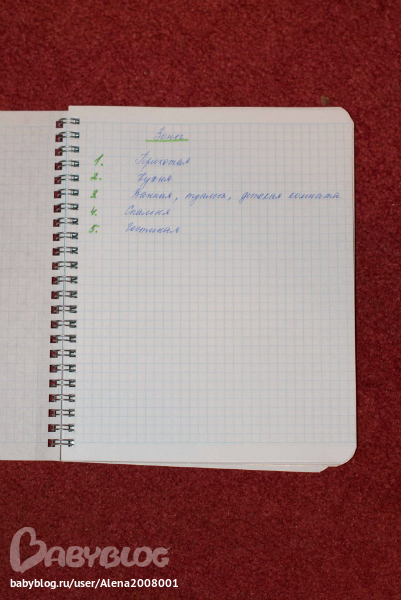 Зоны
1. Прихожая
2. Кухня
3. Ванная, туалет, детская комната
4. Спальня
5. Гостиная
BABYBLOG
babyblog.ru/user/Alena2008001